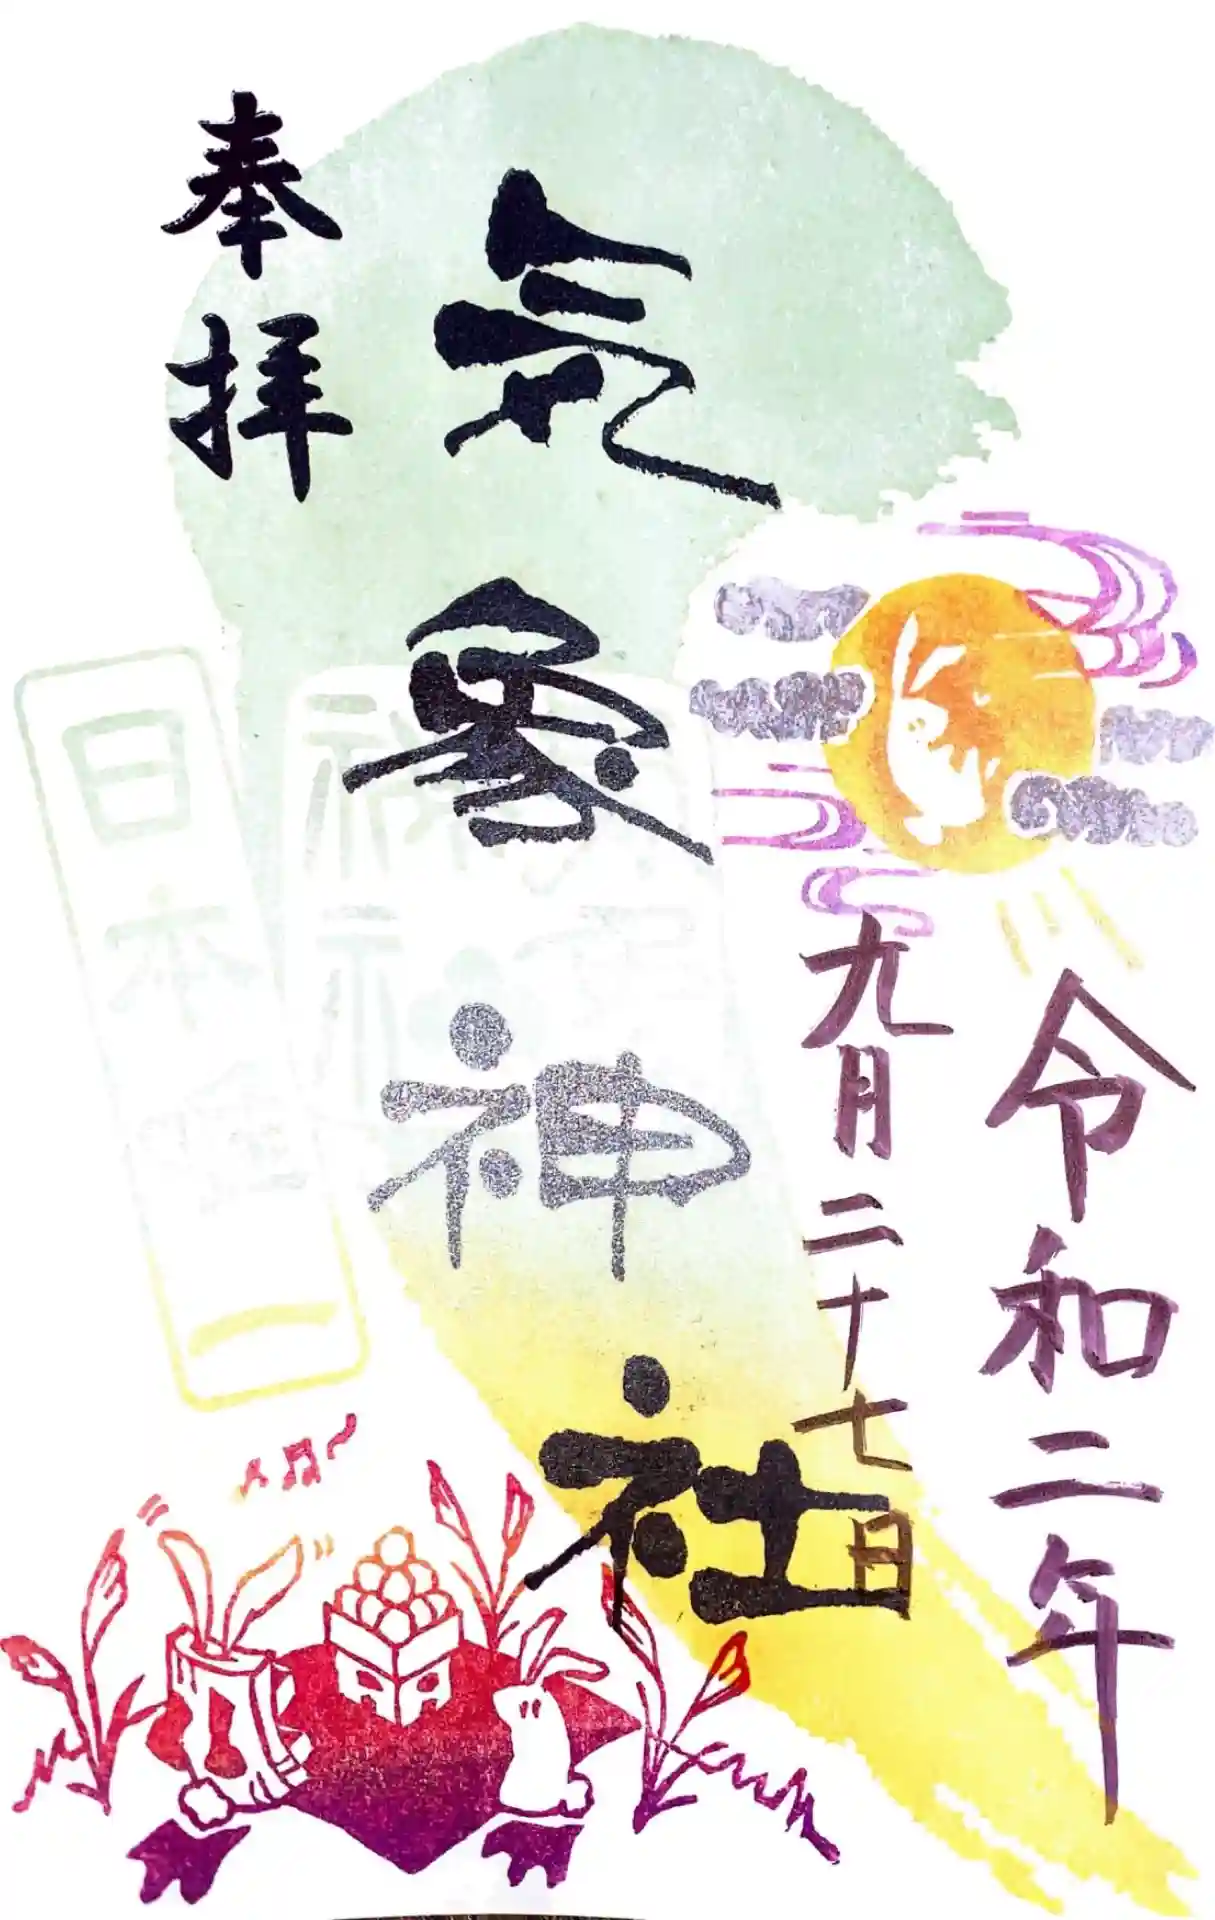 令和二年
九月二十七日
気象神社
奉拝
日本唯一